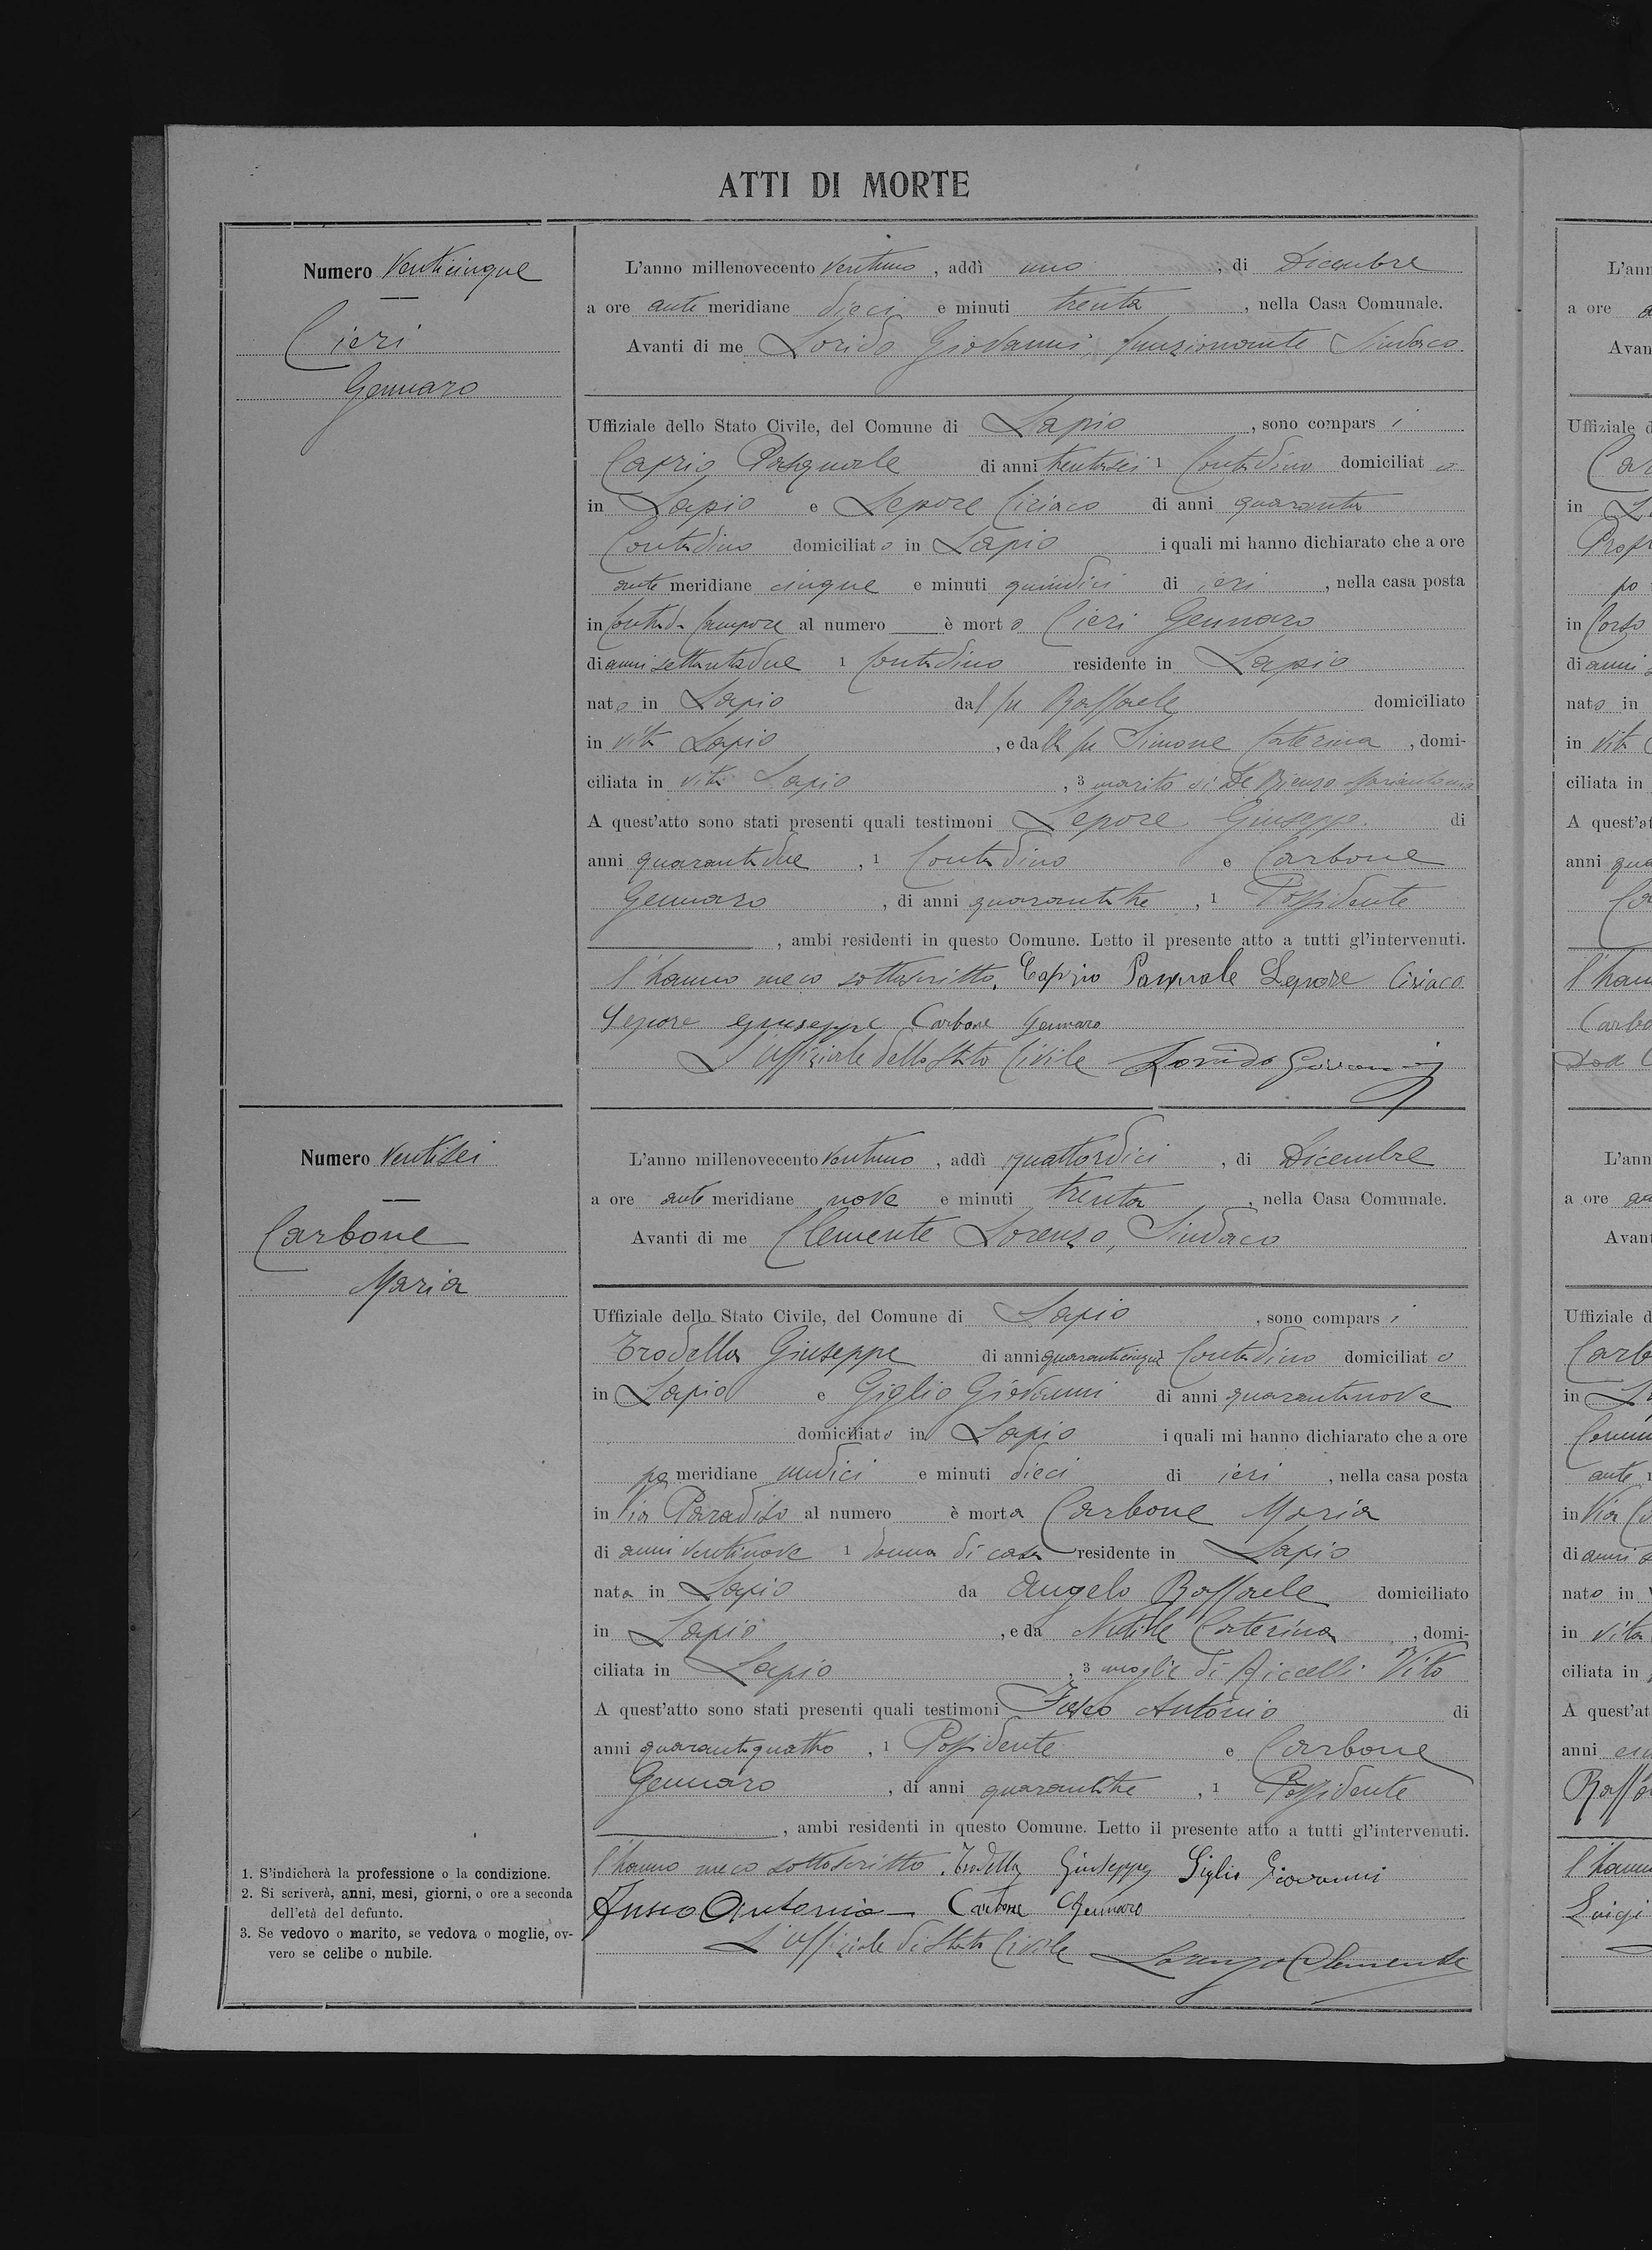 ATTI DI MORTE
Numero Venticinque
Cieri
Gennaro
L'anno millenovecento ventuno, addì uno, di Dicembre
a ore ante meridiane dieci e minuti trenta, nella Casa Comunale.
Avanti di me Lorido Giovanni, funzionante Sindaco
Uffiziale dello Stato Civile, del Comune di Lapio, sono comparsi
Caprio Pasquale di anni trentasei 1 Contadino domiciliato
in Lapio e Lepore Ciriaco di anni quaranta
Contadino domiciliato in Lapio i quali mi hanno dichiarato che a ore
ante meridiane cinque e minuti quindici di ieri, nella casa posta
in al numero è morto Cieri Gennaro
di anni settantadue 1 Contadino residente in Lapio
nato in Lapio dal fu Raffaele domiciliato
in vita Lapio, e dalla fu Simone Caterina, domi-
ciliata in vita Lapio, 3 marito di De Rienzo Mariantonia
A quest'atto sono stati presenti quali testimoni Lepore Giuseppe di
anni quarantadue, 1 Contadino e Carbone
Gennaro, di anni quarantatre, 1 Possidente
, ambi residenti in questo Comune. Letto il presente atto a tutti gl'intervenuti.
l'hanno meco sottoscritto. Caprio Pasquale Lepore Ciriaco
Lepore Giuseppe Carbone Gennaro
L'Uffiziale dello Stato Civile Lorido Giovanni
Numero Ventisei
Carbone
Maria
L'anno millenovecento ventuno, addì quattordici, di Dicembre
a ore ante meridiane nove e minuti trenta, nella Casa Comunale.
Avanti di me Clemente Lorenzo, Sindaco
Uffiziale dello Stato Civile, del Comune di Lapio, sono comparsi
Trodella Giuseppe di anni quarantacinque Contadino domiciliato
in Lapio e Giglio Giovanni di anni quarantanove
domiciliato in Lapio i quali mi hanno dichiarato che a ore
po meridiane undici e minuti dieci di ieri, nella casa posta
in Via Paradiso al numero è morta Carbone Maria
di anni ventinove 1 donna di casa residente in Lapio
nata in Lapio da Angelo Raffaele domiciliato
in Lapio, e da Nutile Caterina, domi-
ciliata in Lapio, 3 moglie di Riccelli Vito
A quest'atto sono stati presenti quali testimoni Fusco Antonio di
anni quarantaquattro, 1 Possidente e Carbone
Gennaro, di anni quarantatre, 1 Possidente
, ambi residenti in questo Comune. Letto il presente atto a tutti gl'intervenuti.
l'hanno meco sottoscritto. Trodella Giuseppe Giglio Giovanni
Fusco Antonio Carbone Gennaro
L'Uffiziale di Stato Civile Lorenzo Clemente
1. S'indicherà la professione o la condizione.
2. Si scriverà, anni, mesi, giorni, o ore a seconda
dell'età del defunto.
3. Se vedovo o marito, se vedova o moglie, ov-
vero se celibe o nubile.